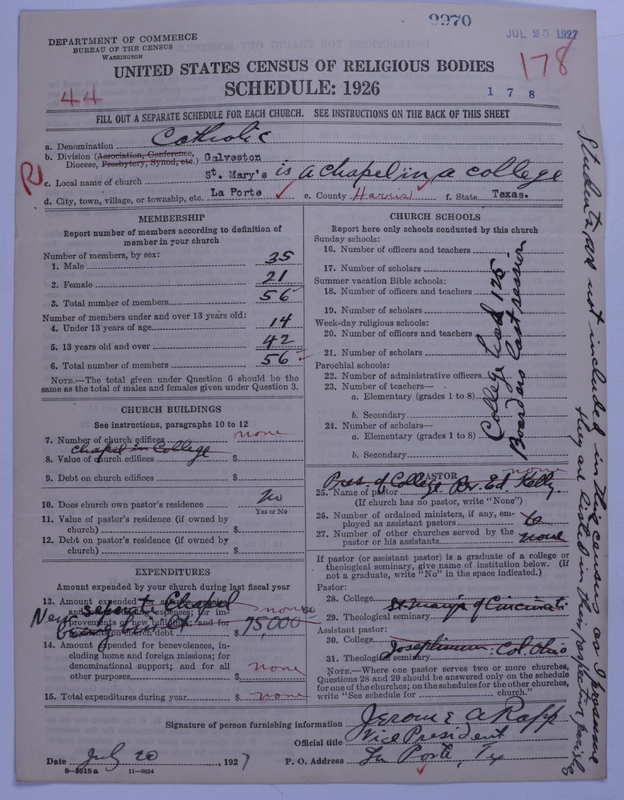 9970
JUL 25 1927
DEPARTMENT OF COMMERCE
BUREAU OF THE CENSUS
WASHINGTON
178
UNITED STATES CENSUS OF RELIGIOUS BODIES
SCHEDULE: 1926
44
1 7 8
FILL OUT A SEPARATE SCHEDULE FOR EACH CHURCH. SEE INSTRUCTIONS ON THE BACK OF THIS SHEET
a. Denomination Catholic
b. Division (Association, Conference, Diocese, Presbytery, Synod, etc.) Galveston
R
c. Local name of church St. Mary's is a chapel in a college
d. City, town, village, or township, etc. La Porte e. County Harris f. State Texas.
MEMBERSHIP
Report number of members according to definition of
member in your church
Number of members, by sex:
1. Male 35
2. Female 21
3. Total number of members 56
Number of members under and over 13 years old:
4. Under 13 years of age 14
5. 13 years old and over 42
6. Total number of members 56
NOTE.—The total given under Question 6 should be
the same as the total of males and females given under Question 3.
CHURCH BUILDINGS
See instructions, paragraphs 10 to 12
7. Number of church edifices none
chapel in College
8. Value of church edifices $
9. Debt on church edifices $
10. Does church own pastor's residence No
Yes or No
11. Value of pastor's residence (if owned by
church) $
12. Debt on pastor's residence (if owned by
church) $
EXPENDITURES
Amount expended by your church during last fiscal year
13. Amount expended for
and expenses; for im-
provements or new buildings; and for
church debt $ 75,000 none
New separate Chapel
being built
14. Amount for benevolences, in-
cluding home and foreign missions; for
denominational support; and for all
other purposes $ none
15. Total expenditures during year $ none
CHURCH SCHOOLS
Report here only schools conducted by this church
Sunday schools:
16. Number of officers and teachers
17. Number of scholars
Summer vacation Bible schools:
18. Number of officers and teachers
19. Number of scholars
Week-day religious schools:
20. Number of officers and teachers
21. Number of scholars
Parochial schools:
22. Number of administrative officers
23. Number of teachers—
a. Elementary (grades 1 to 8)
b. Secondary
24. Number of scholars—
a. Elementary (grades 1 to 8)
b. Secondary
College had 125
Boarders last session
PASTOR
none
25. Name of pastor Pres. of College Br. Ed. Kelly.
(If church has no pastor, write "None")
26. Number of ordained ministers, if any, em-
ployed as assistant pastors
27. Number of other churches served by the
pastor or his assistants none
If pastor (or assistant pastor) is a graduate of a college or
theological seminary, give name of institution below. (If
not a graduate, write "No" in the space indicated.)
Pastor:
28. College
St. Mary's of Cincinnati
29. Theological seminary
Assistant pastor:
30. College
Josephinum Col. Ohio
31. Theological seminary
NOTE.—Where one pastor serves two or more churches,
Questions 28 and 29 should be answered only on the schedule
for one of the churches; on the schedules for the other churches,
write "See schedule for church."
Students are not included in this census as I presume
they are listed in their respective parishes
Signature of person furnishing information Jerome A Rapp
Official title Vice President
Date July 20, 1927 P. O. Address La Porte, Tx
8-5518a 11-9064